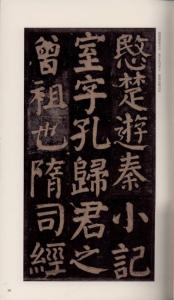 愍楚遊秦小記
室字孔歸君之
曾祖也隋司經